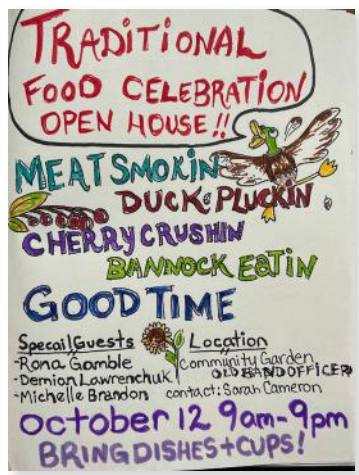 TRADITIONAL
FOOD CELEBRATION
OPEN HOUSE!!
MEAT SMOKIN
DUCK PLUCKIN
CHERRY CRUSHIN
BANNOCK EATIN
GOOD TIME
Specail Guests
-Rona Gamble
-Demian Lawrenchuk
-Michelle Brandon
Location
Community Garden
OLD BAND OFFICE
contact: Sarah Cameron
October 12 9am-9pm
BRING DISHES+CUPS!